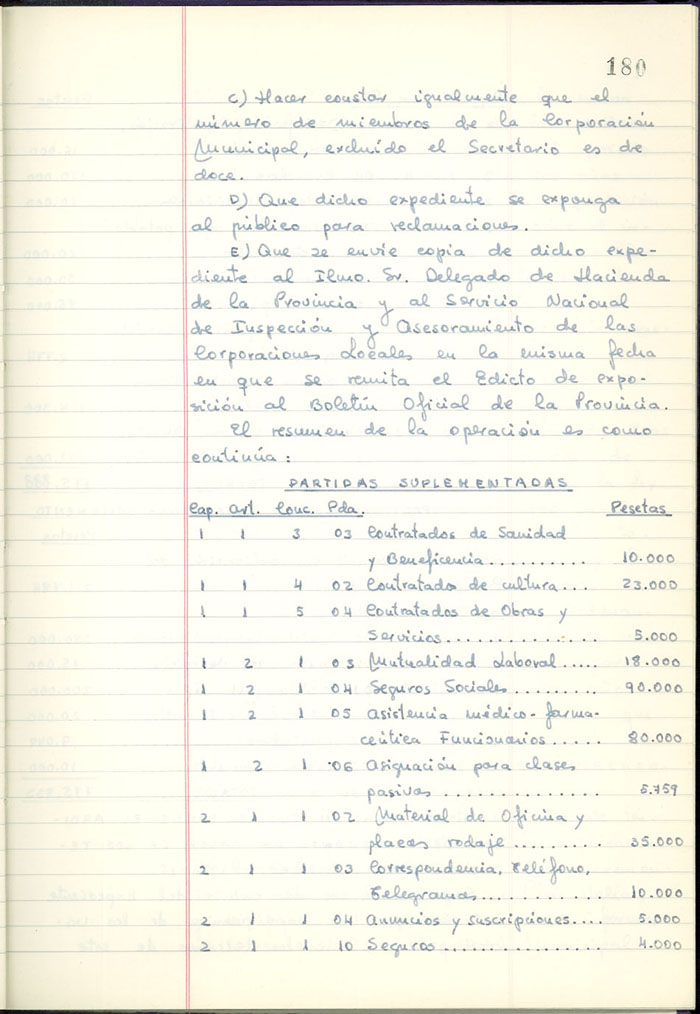 180
C) Hacer constar igualmente que el
número de miembros de la Corporación
Municipal, excluído el Secretario es de
doce.
D) Que dicho expediente se exponga
al público para reclamaciones.
E) Que se envíe copia de dicho expe-
diente al Ilmo. Sr. Delegado de Hacienda
de la Provincia y al Servicio Nacional
de Inspección y Asesoramiento de las
Corporaciones Locales en la misma fecha
en que se remita el Edicto de expo-
sición al Boletín Oficial de la Provincia.
El resumen de la operación es como
continúa:
PARTIDAS SUPLEMENTADAS
Cap. Art. Conc. Pda. Pesetas
1 1 3 03 Contratados de Sanidad
y Beneficencia.......... 10.000
1 1 4 02 Contratado de cultura... 23.000
1 1 5 04 Contratados de Obras y
Servicios.............. 5.000
1 2 1 03 Mutualidad Laboral..... 18.000
1 2 1 04 Seguros Sociales........ 90.000
1 2 1 05 Asistencia médico-farma-
ceútica Funcionarios..... 80.000
1 2 1 06 Asignación para clases
pasivas............... 5.759
2 1 1 02 Material de Oficina y
placas rodaje......... 35.000
2 1 1 03 Correspondencia, Teléfono,
Telegramas............ 10.000
2 1 1 04 Anuncios y suscripciones... 5.000
2 1 1 10 Seguros............... 4.000